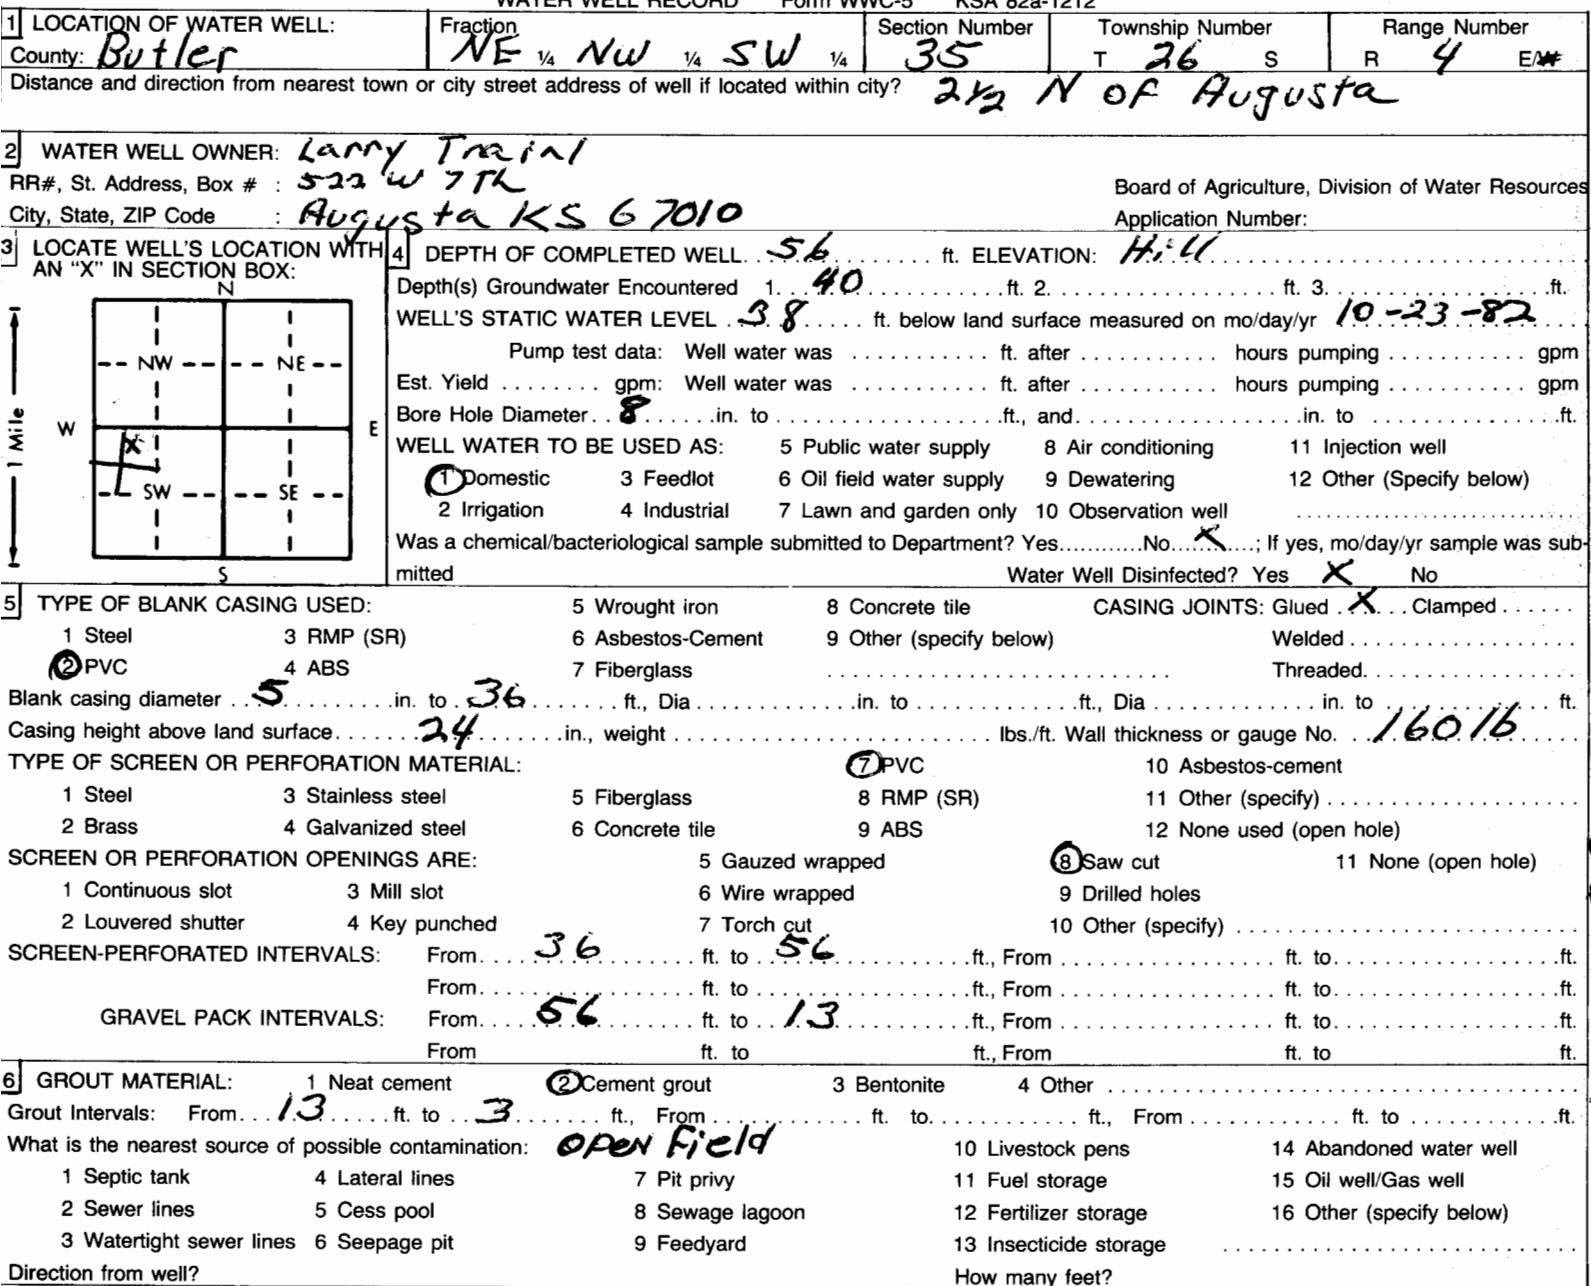 WATER WELL RECORD Form WWC-5 KSA 82a-1212
1 LOCATION OF WATER WELL: Fraction Section Number Township Number Range Number
County: Butler NE ¼ NW ¼ SW ¼ 35 T 26 S R 4 E/W
Distance and direction from nearest town or city street address of well if located within city? 2½ N OF Augusta
2 WATER WELL OWNER: Larry
RR#, St. Address, Box # : 522 W 7Th Board of Agriculture, Division of Water Resources
City, State, ZIP Code : Augusta KS 67010 Application Number:
3 LOCATE WELL'S LOCATION WITH 4 DEPTH OF COMPLETED WELL. . 56 ft. ELEVATION: Hill
AN "X" IN SECTION BOX:
N Depth(s) Groundwater Encountered 1. 40 ft. 2. ft. 3. ft.
WELL'S STATIC WATER LEVEL 38 ft. below land surface measured on mo/day/yr 10-23-82
Pump test data: Well water was ft. after hours pumping gpm
NW NE
Est. Yield gpm: Well water was ft. after hours pumping gpm
Bore Hole Diameter 8 in. to ft., and in. to ft.
1 Mile W E
X
WELL WATER TO BE USED AS: 5 Public water supply 8 Air conditioning 11 Injection well
1 Domestic 3 Feedlot 6 Oil field water supply 9 Dewatering 12 Other (Specify below)
SW SE
2 Irrigation 4 Industrial 7 Lawn and garden only 10 Observation well
Was a chemical/bacteriological sample submitted to Department? Yes No X ; If yes, mo/day/yr sample was sub-
S mitted Water Well Disinfected? Yes X No
5 TYPE OF BLANK CASING USED: 5 Wrought iron 8 Concrete tile CASING JOINTS: Glued X Clamped
1 Steel 3 RMP (SR) 6 Asbestos-Cement 9 Other (specify below) Welded
2 PVC 4 ABS 7 Fiberglass Threaded
Blank casing diameter 5 in. to 36 ft., Dia in. to ft., Dia in. to ft.
Casing height above land surface 24 in., weight lbs./ft. Wall thickness or gauge No. 160 lb
TYPE OF SCREEN OR PERFORATION MATERIAL: 7 PVC 10 Asbestos-cement
1 Steel 3 Stainless steel 5 Fiberglass 8 RMP (SR) 11 Other (specify)
2 Brass 4 Galvanized steel 6 Concrete tile 9 ABS 12 None used (open hole)
SCREEN OR PERFORATION OPENINGS ARE: 5 Gauzed wrapped 8 Saw cut 11 None (open hole)
1 Continuous slot 3 Mill slot 6 Wire wrapped 9 Drilled holes
2 Louvered shutter 4 Key punched 7 Torch cut 10 Other (specify)
SCREEN-PERFORATED INTERVALS: From 36 ft. to 56 ft., From ft. to ft.
From ft. to ft., From ft. to ft.
GRAVEL PACK INTERVALS: From 56 ft. to 13 ft., From ft. to ft.
From ft. to ft., From ft. to ft.
6 GROUT MATERIAL: 1 Neat cement 2 Cement grout 3 Bentonite 4 Other
Grout Intervals: From 13 ft. to 3 ft., From ft. to ft., From ft. to ft.
What is the nearest source of possible contamination: OPEN Field 10 Livestock pens 14 Abandoned water well
1 Septic tank 4 Lateral lines 7 Pit privy 11 Fuel storage 15 Oil well/Gas well
2 Sewer lines 5 Cess pool 8 Sewage lagoon 12 Fertilizer storage 16 Other (specify below)
3 Watertight sewer lines 6 Seepage pit 9 Feedyard 13 Insecticide storage
Direction from well? How many feet?